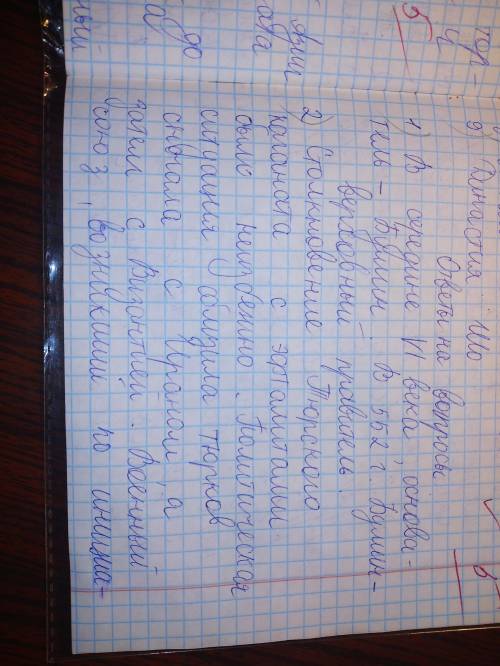 9) Династия Шо
Ответы на вопросы
1) В средине VI века, основа-
тель - Бумин. В 552 г. Бумин-
верховный правитель.
2) Столкновение Тюрского
каганата с эфталитами
было неизбежно. Политическая
ситуация сблизила тюрков
сначала с Ираном, а
затем с Византией. Военный
союз, возникший по инициа-
5
5